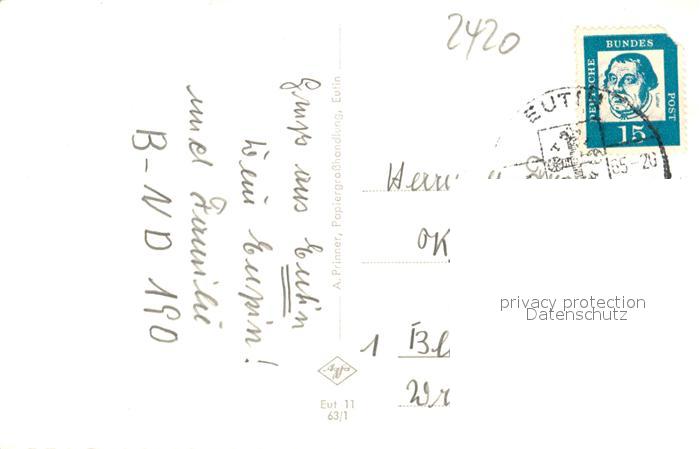 2420
DEUTSCHE
BUNDES
POST
15
EUTIN
65-20
Gruß aus Eutin
Dein
und Familie
B-ND 190
A. Prinner, Papiergroßhandlung, Eutin
Herrn
OK
1 Bl
Wr
privacy protection
Datenschutz
Eut 11
63/1